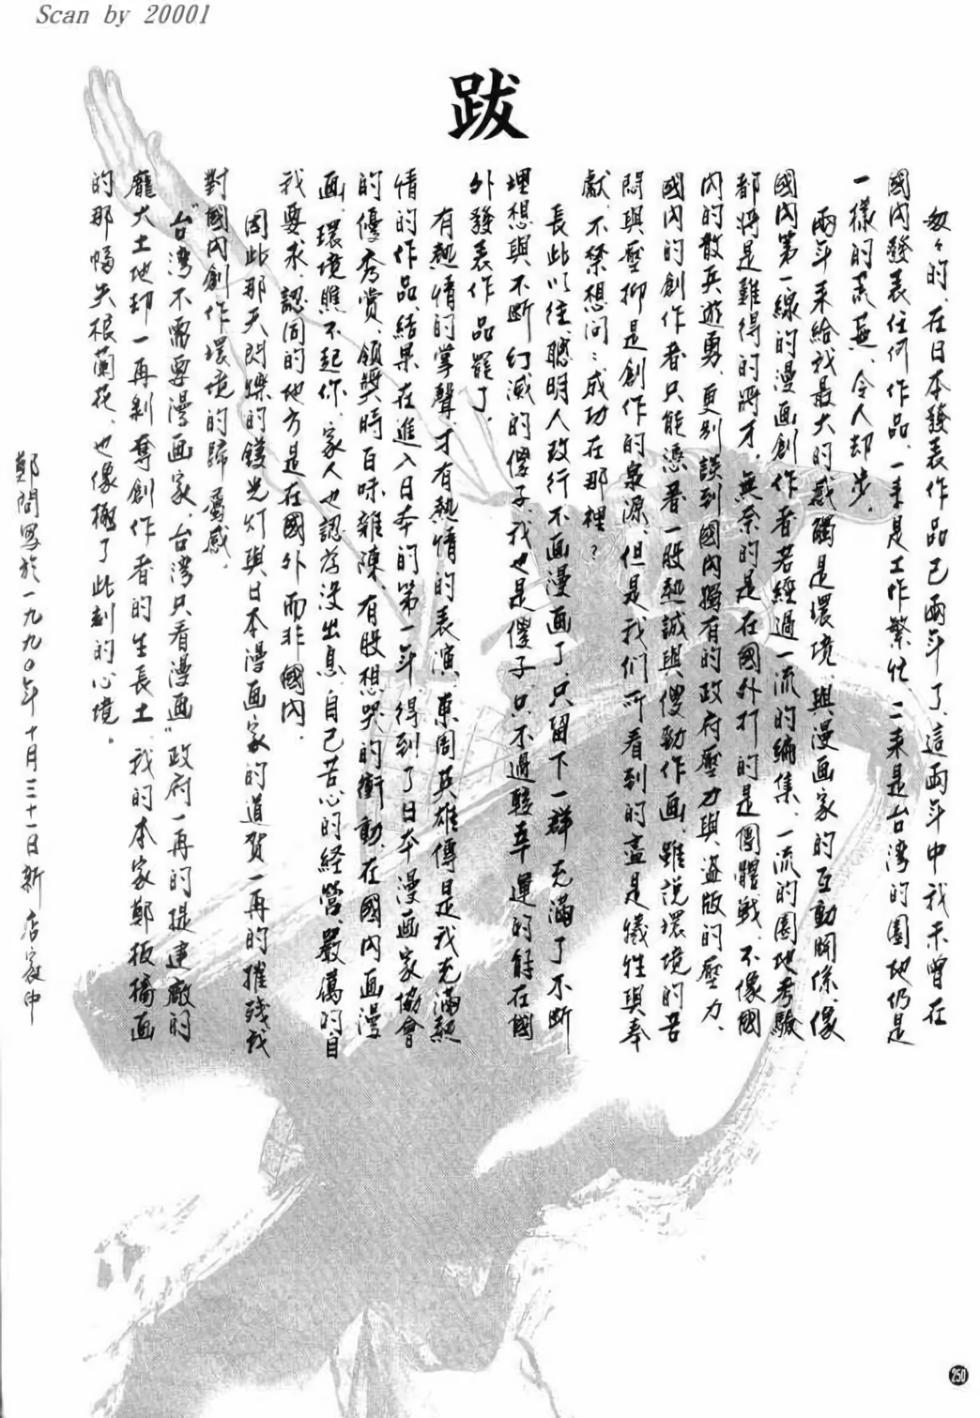 Scan by 20001
跋
匆々的、在日本發表作品已兩年了、這兩年中我未曾在
國內發表任何作品、一來是工作繁忙、二來是台湾的園地仍是
一樣的荒蕪、令人却步。
兩年來給我最大的感觸是環境、與漫画家的互動関係、像
國內第一線的漫画創作者若經過一流的編集、一流的園地考驗
都將是難得的將才、無奈的是在國外打的是團體戰、不像國
內的散兵遊勇、更別談到國內獨有的政府壓力與盗版的壓力、
國內的創作者只能憑着一股熱誠與傻勁作画、雖説環境的苦
悶與壓抑是創作的泉源、但是我們所看到的盡是犧牲與奉
獻、不禁想问：成功在那裡？
長此以往、聰明人改行不画漫画了、只留下一群充滿了不断
理想與不断幻滅的傻子、我也是傻子、只不過較幸運的能在國
外發表作品罷了。
有熱情的掌聲才有熱情的表演、東周英雄傳是我充滿熱
情的作品、結果在進入日本的第一年、得到了日本漫画家協會
的優秀賞、領奬時百味雜陳、有股想哭的衝動、在國內画漫
画、環境瞧不起你、家人也認為没出息、自己苦心的経營、嚴厲的自
我要求、認同的地方是在國外而非國內、
因此那天閃爍的鎂光灯與日本漫画家的道賀一再的摧殘我
對國內創作環境的歸屬感、
“台湾不需要漫画家、台湾只看漫画”政府一再的提建廠的
龐大土地却一再剝奪創作者的生長土、我的本家鄭板橋画
的那幅失根蘭花、也像極了此刻的心境。
鄭問寫於一九九〇年十月三十一日新店家中
250